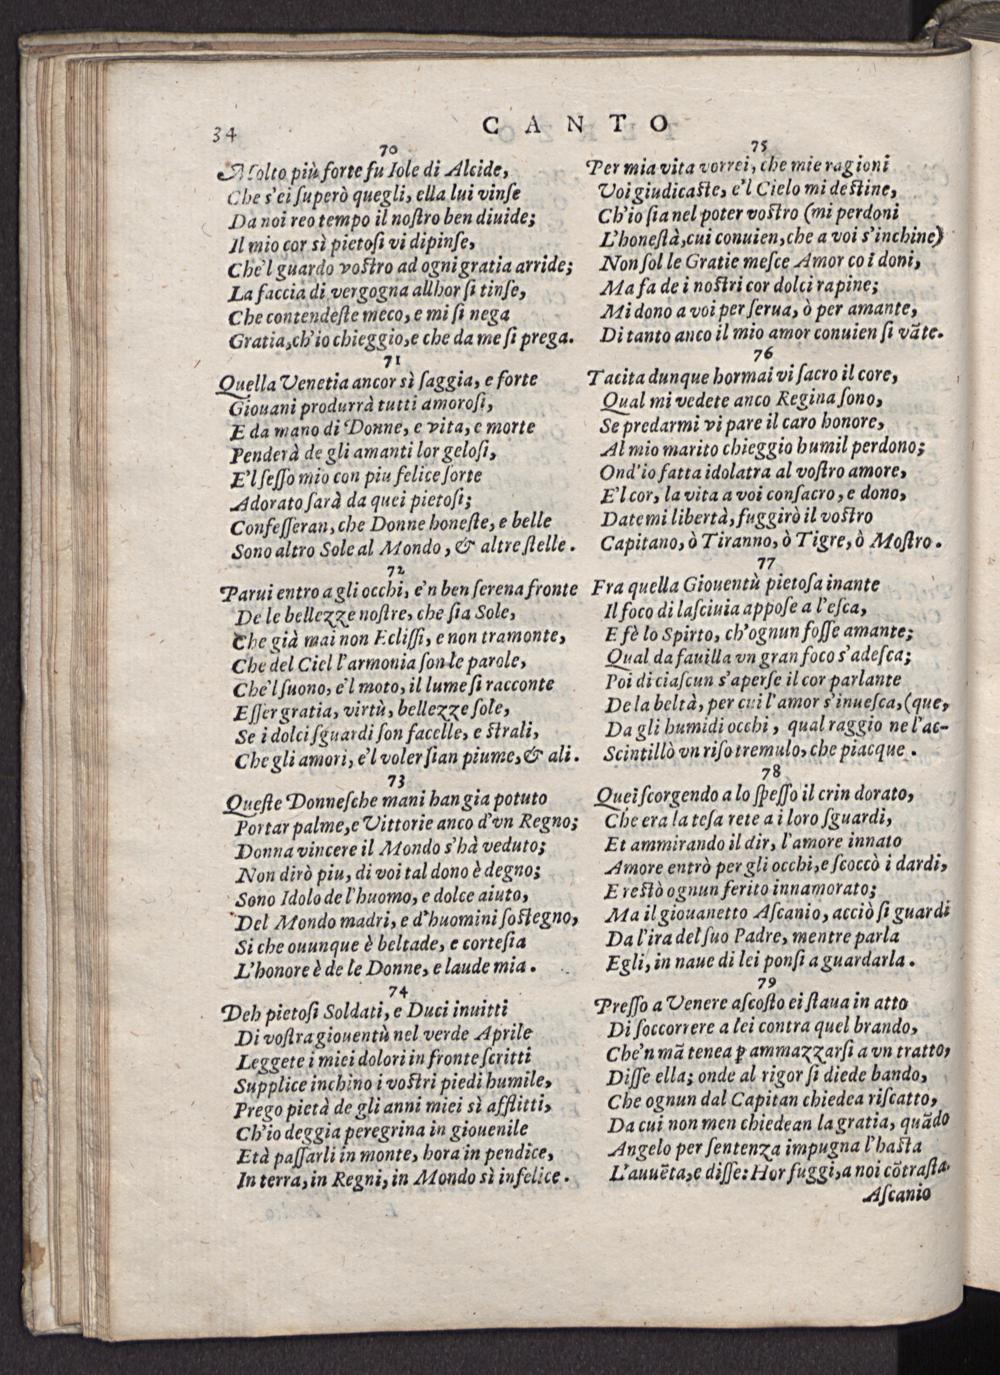 34
CANTO
70
Molto più forte fu Iole di Alcide,
Che s'ei ſuperò quegli, ella lui vinſe
Da noi reo tempo il noſtro ben diuide;
Il mio cor sì pietoſi vi dipinſe,
Che'l guardo voſtro ad ogni gratia arride;
La faccia di vergogna allhor ſi tinſe,
Che contendeſte meco, e mi ſi nega
Gratia, ch'io chieggio, e che da me ſi prega.
71
Quella Venetia ancor sì ſaggia, e forte
Giouani produrrà tutti amoroſi,
E da mano di Donne, e vita, e morte
Penderà de gli amanti lor geloſi,
E'l ſeſſo mio con piu felice ſorte
Adorato ſarà da quei pietoſi;
Confeſſeran, che Donne honeſte, e belle
Sono altro Sole al Mondo, & altre ſtelle.
72
Parui entro a gli occhi, e'n ben ſerena fronte
De le bellezze noſtre, che ſia Sole,
Che già mai non Ecliſſi, e non tramonte,
Che del Ciel l'armonia ſon le parole,
Che'l ſuono, e'l moto, il lume ſi racconte
Eſſer gratia, virtù, bellezze ſole,
Se i dolci ſguardi ſon facelle, e ſtrali,
Che gli amori, e'l voler ſian piume, & ali.
73
Queſte Donneſche mani han gia potuto
Portar palme, e Vittorie anco d'vn Regno;
Donna vincere il Mondo s'hà veduto;
Non dirò piu, di voi tal dono è degno;
Sono Idolo de l'huomo, e dolce aiuto,
Del Mondo madri, e d'huomini ſoſtegno,
Si che ouunque è beltade, e corteſia
L'honore è de le Donne, e laude mia.
74
Deh pietoſi Soldati, e Duci inuitti
Di voſtra giouentù nel verde Aprile
Leggete i miei dolori in fronte ſcritti
Supplice inchino i voſtri piedi humile,
Prego pietà de gli anni miei sì afflitti,
Ch'io deggia peregrina in giouenile
Età paſſarli in monte, hora in pendice,
In terra, in Regni, in Mondo sì infelice.
75
Per mia vita vorrei, che mie ragioni
Voi giudicaſte, e'l Cielo mi deſtine,
Ch'io ſia nel poter voſtro (mi perdoni
L'honeſtà, cui conuien, che a voi s'inchine)
Non ſol le Gratie meſce Amor co i doni,
Ma fa de i noſtri cor dolci rapine;
Mi dono a voi per ſerua, ò per amante,
Di tanto anco il mio amor conuien ſi vãte.
76
Tacita dunque hormai vi ſacro il core,
Qual mi vedete anco Regina ſono,
Se predarmi vi pare il caro honore,
Al mio marito chieggio humil perdono;
Ond'io fatta idolatra al voſtro amore,
E'l cor, la vita a voi conſacro, e dono,
Date mi libertà, fuggirò il voſtro
Capitano, ò Tiranno, ò Tigre, ò Moſtro.
77
Fra quella Giouentù pietoſa inante
Il foco di laſciuia appoſe a l'eſca,
E fè lo Spirto, ch'ognun foſſe amante;
Qual da fauilla vn gran foco s'adeſca;
Poi di ciaſcun s'aperſe il cor parlante
De la beltà, per cui l'amor s'inueſca, (que,
Da gli humidi occhi, qual raggio ne l'ac-
Scintillò vn riſo tremulo, che piacque.
78
Quei ſcorgendo a lo ſpeſſo il crin dorato,
Che era la teſa rete a i loro ſguardi,
Et ammirando il dir, l'amore innato
Amore entrò per gli occhi, e ſcoccò i dardi,
E reſtò ognun ferito innamorato;
Ma il giouanetto Aſcanio, acciò ſi guardi
Da l'ira del ſuo Padre, mentre parla
Egli, in naue di lei ponſi a guardarla.
79
Preſſo a Venere aſcoſto ei ſtaua in atto
Di ſoccorrere a lei contra quel brando,
Che'n mã tenea ꝑ ammazzarſi a vn tratto,
Diſſe ella; onde al rigor ſi diede bando,
Che ognun dal Capitan chiedea riſcatto,
Da cui non men chiedean la gratia, quãdo
Angelo per ſentenza impugna l'haſta
L'auuẽta, e diſſe: Hor fuggi, a noi cõtraſta.
Aſcanio